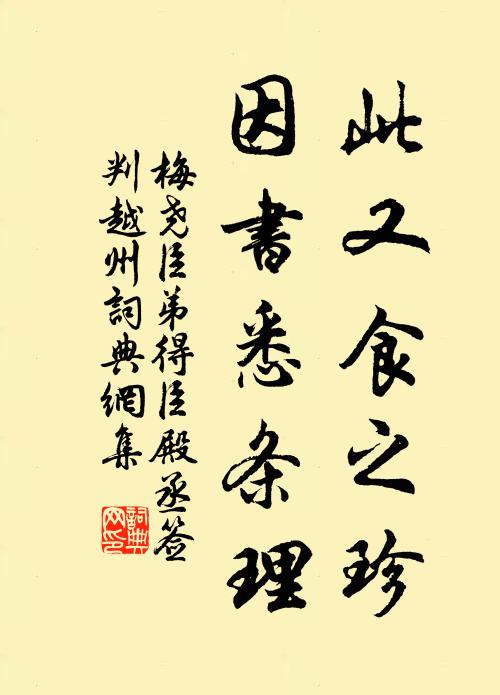 此又食之珍
因書悉条理
梅尧臣弟得臣殿丞签
判越州詞典網集
詞典网印